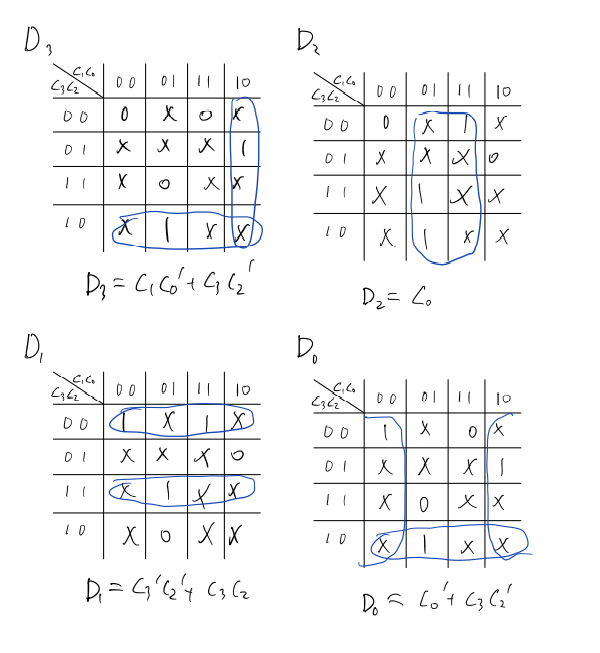 D3
C3C2 \ C1C0 00 01 11 10
00 0 X 0 X
01 X X X 1
11 X 0 X X
10 X 1 X X
D3 = C1C0' + C3C2'
D2
C3C2 \ C1C0 00 01 11 10
00 0 X 1 X
01 X X X 0
11 X 1 X X
10 X 1 X X
D2 = C0
D1
C3C2 \ C1C0 00 01 11 10
00 1 X 1 X
01 X X X 0
11 X 1 X X
10 X 0 X X
D1 = C3'C2' + C3C2
D0
C3C2 \ C1C0 00 01 11 10
00 1 X 0 X
01 X X X 1
11 X 0 X X
10 X 1 X X
D0 = C0' + C3C2'